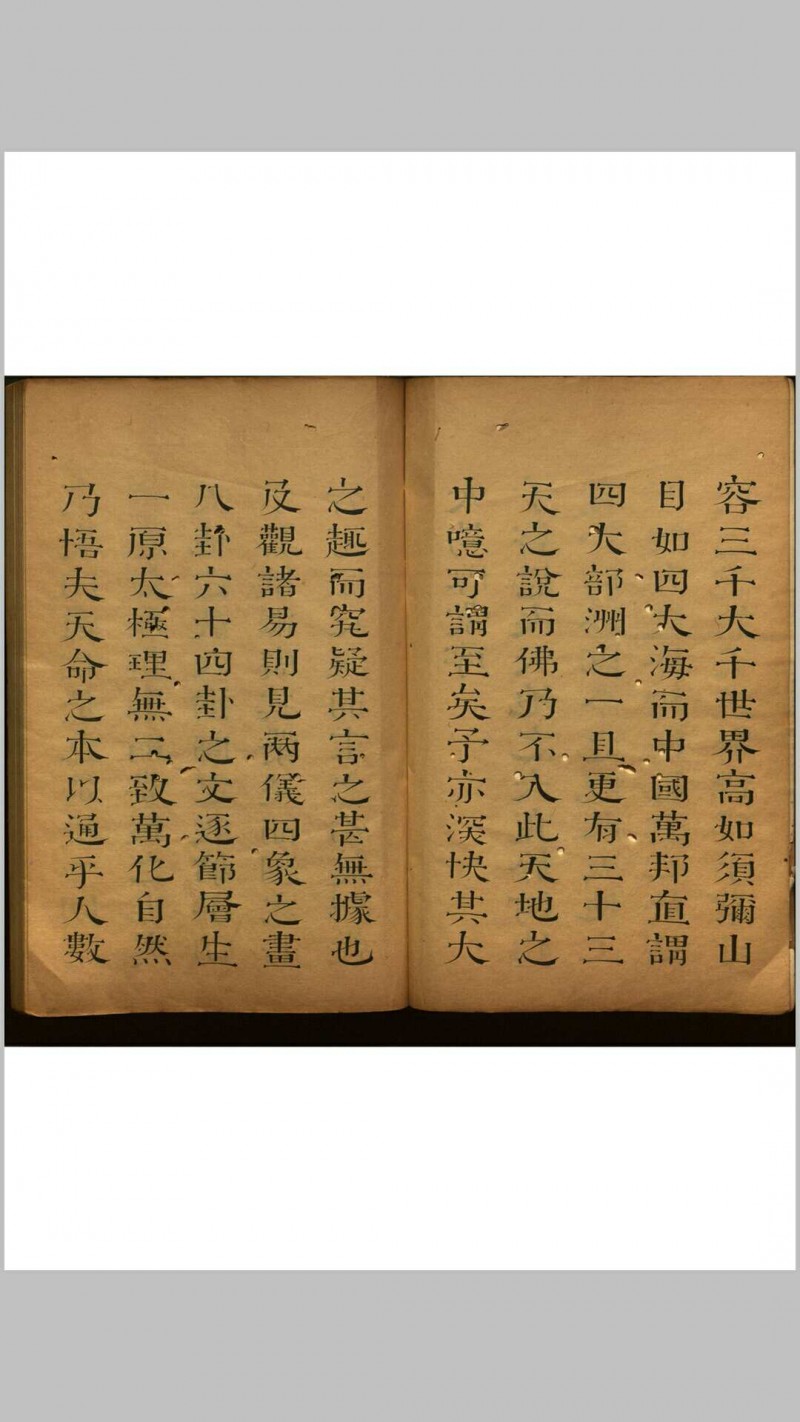 容三千大千世界高如須彌山
目如四大海而中國萬邦直謂
四大部洲之一且更有三十三
天之說而佛乃不入此天地之
中噫可謂至矣予亦深快其大
之趣而究疑其言之甚無據也
及觀諸易則見兩儀四象之畫
八卦六十四卦之文逐節層生
一原太極理無二致萬化自然
乃悟夫天命之本以通乎人數